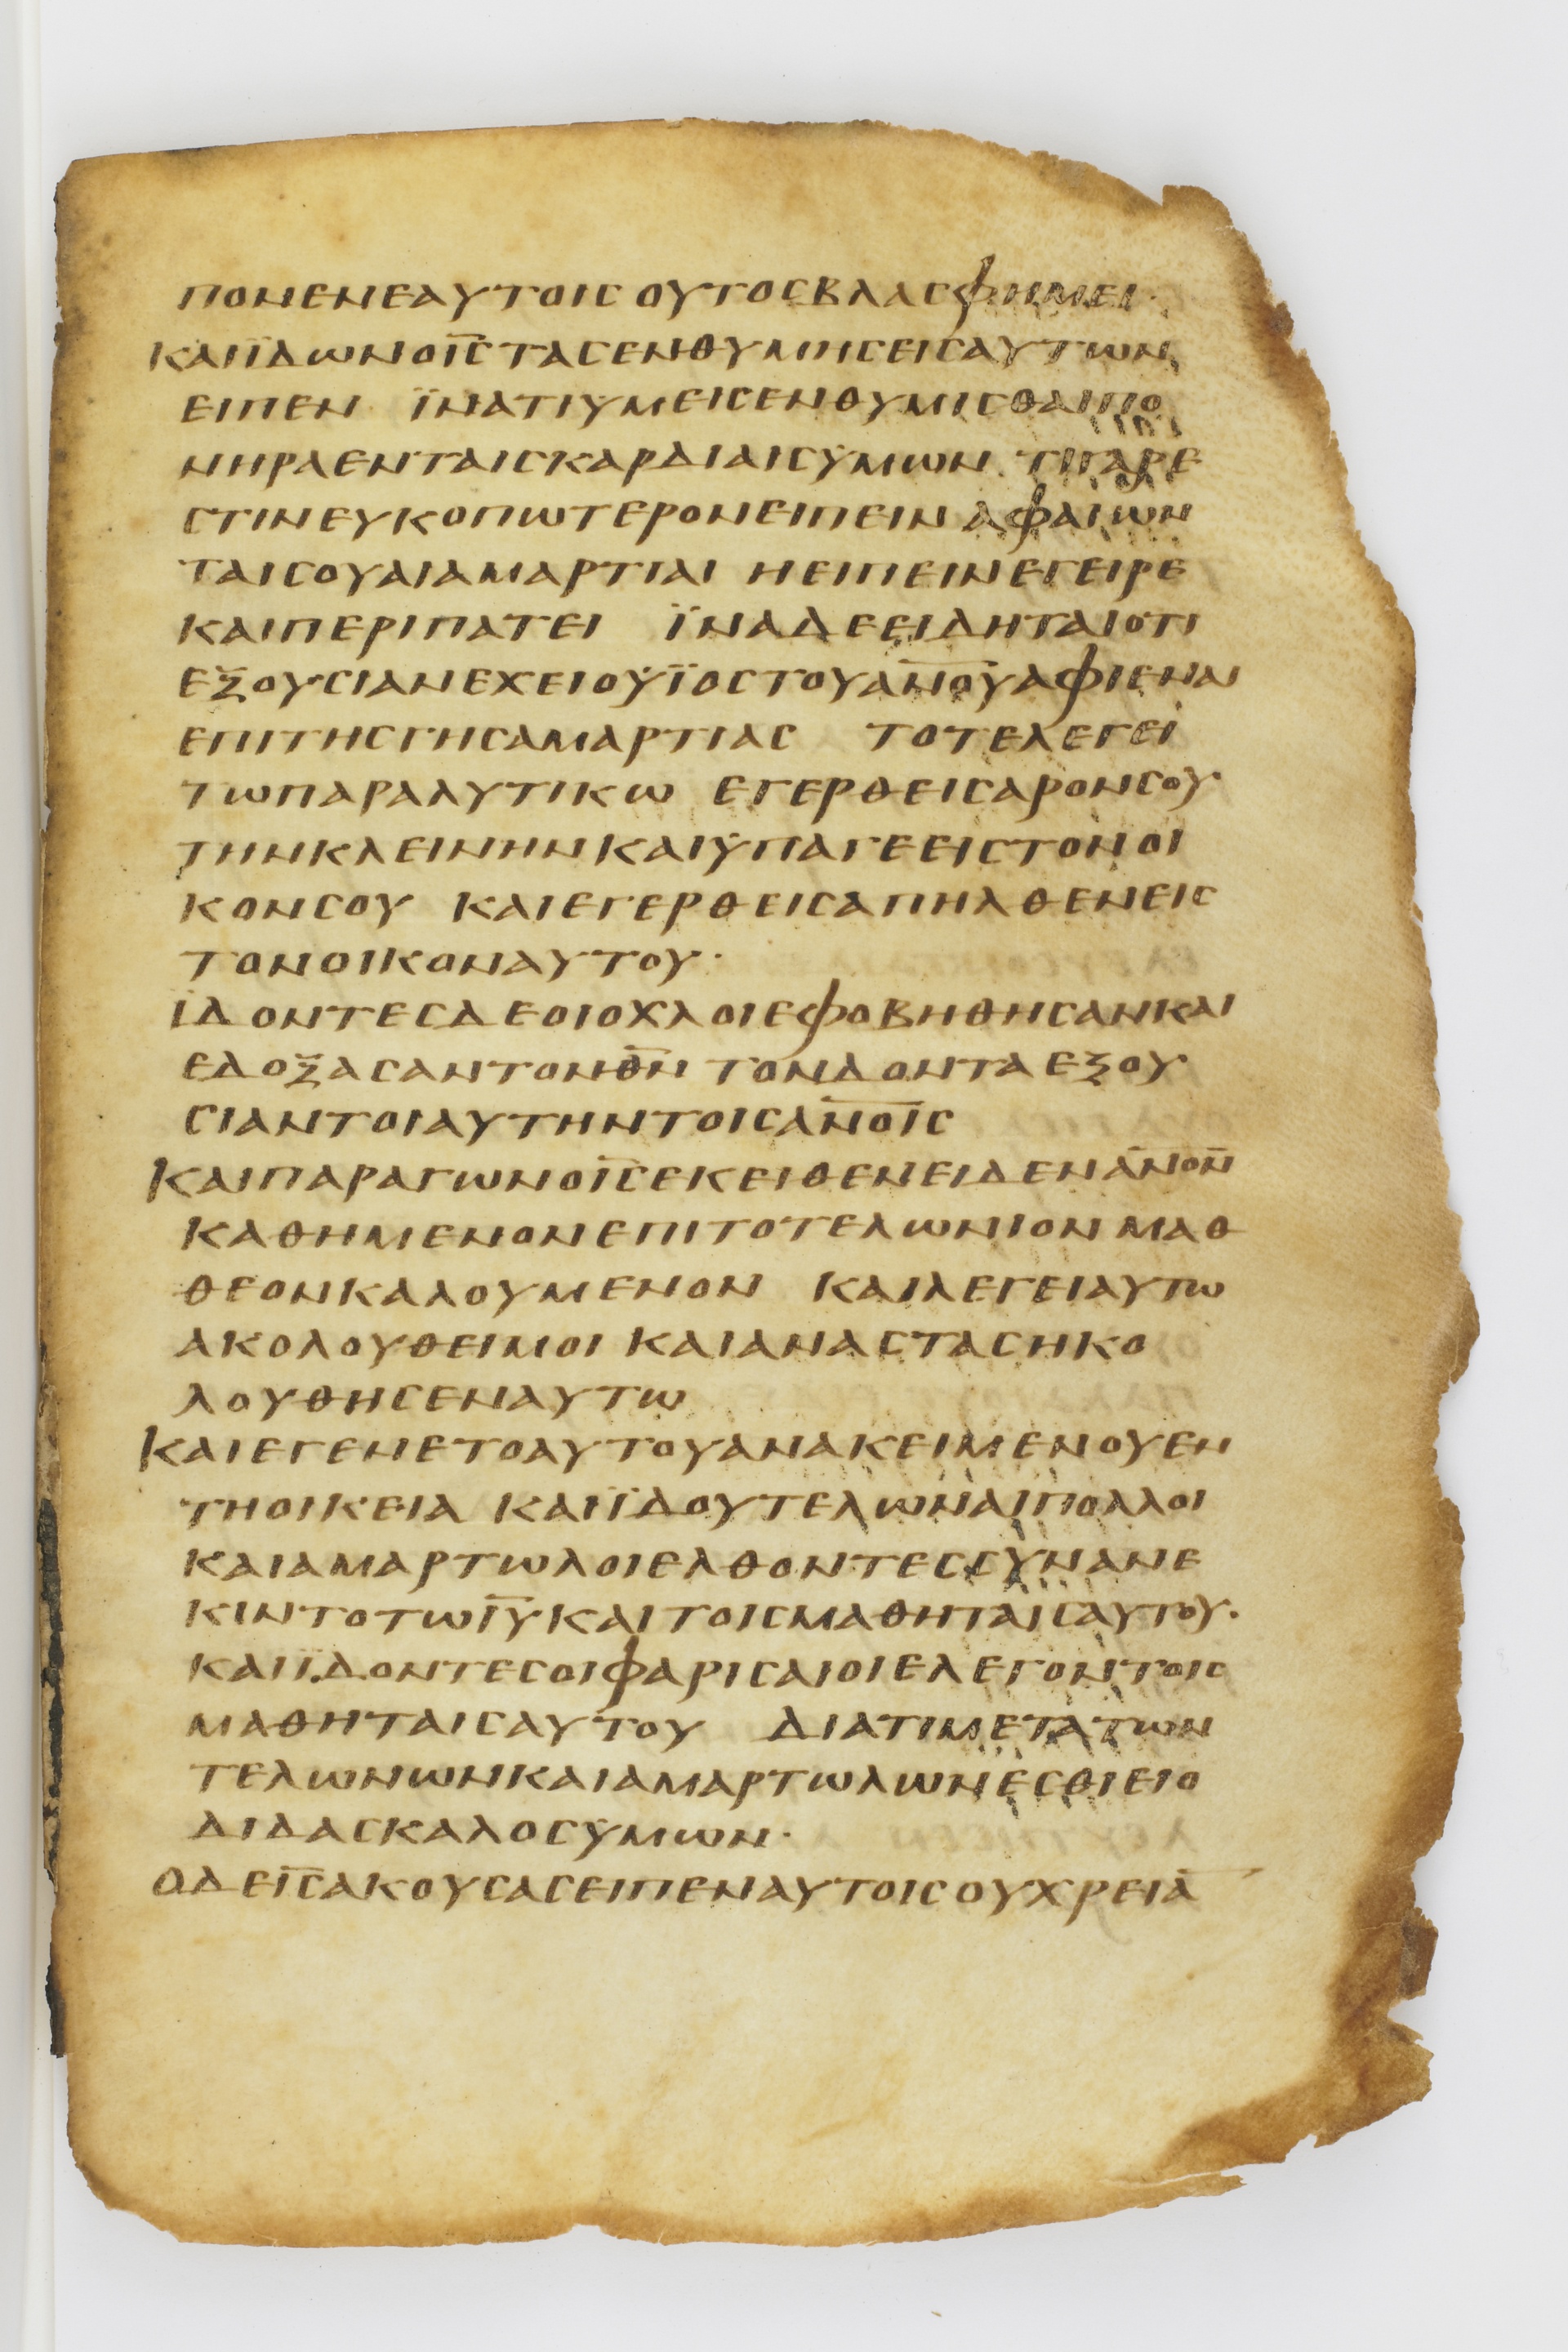 ΠΟΝΕΝΕΑΥΤΟΙС ΟΥΤΟСΒΛΑСΦΗΜΕΙ·
ΚΑΙΪΔΩΝΟΙ̅С̅ΤΑСΕΝΘΥΜΗСΕΙСΑΥΤΩΝ
ΕΙΠΕΝ ΪΝΑΤΙΥΜΕΙСΕΝΘΥΜΙСΘΑΙΠΟ
ΝΗΡΑΕΝΤΑΙСΚΑΡΔΙΑΙСΥΜΩΝ· ΤΙΓΑΡΕ
СΤΙΝΕΥΚΟΠΩΤΕΡΟΝΕΙΠΕΙΝ ΑΦΑΙΩΝ
ΤΑΙСΟΥΑΙΑΜΑΡΤΙΑΙ ΗΕΙΠΕΙΝΕΓΕΙΡΕ
ΚΑΙΠΕΡΙΠΑΤΕΙ ΪΝΑΔΕΕΙΔΗΤΑΙΟΤΙ
ΕΞΟΥСΙΑΝΕΧΕΙΟΥΪΟСΤΟΥΑ̅Ν̅Ο̅Υ̅ΑΦΙΕΝΑΙ
ΕΠΙΤΗСΓΗСΑΜΑΡΤΙΑС ΤΟΤΕΛΕΓΕΙ
ΤΩΠΑΡΑΛΥΤΙΚΩ ΕΓΕΡΘΕΙСΑΡΟΝСΟΥ
ΤΗΝΚΛΕΙΝΗΝΚΑΙΥΠΑΓΕΕΙСΤΟΝΟΙ
ΚΟΝСΟΥ ΚΑΙΕΓΕΡΘΕΙСΑΠΗΛΘΕΝΕΙС
ΤΟΝΟΙΚΟΝΑΥΤΟΥ·
ΪΔΟΝΤΕСΔΕΟΙΟΧΛΟΙΕΦΟΒΗΘΗСΑΝΚΑΙ
ΕΔΟΞΑСΑΝΤΟΝΘ̅Ν̅ ΤΟΝΔΟΝΤΑΕΞΟΥ
СΙΑΝΤΟΙΑΥΤΗΝΤΟΙСΑ̅Ν̅Ο̅Ι̅С̅
ΚΑΙΠΑΡΑΓΩΝΟΙ̅С̅ΕΚΕΙΘΕΝΕΙΔΕΝΑ̅Ν̅Ο̅Ν̅
ΚΑΘΗΜΕΝΟΝΕΠΙΤΟΤΕΛΩΝΙΟΝΜΑΘ
ΘΕΟΝΚΑΛΟΥΜΕΝΟΝ ΚΑΙΛΕΓΕΙΑΥΤΩ
ΑΚΟΛΟΥΘΕΙΜΟΙ ΚΑΙΑΝΑСΤΑСΗΚΟ
ΛΟΥΘΗСΕΝΑΥΤΩ
ΚΑΙΕΓΕΝΕΤΟΑΥΤΟΥΑΝΑΚΕΙΜΕΝΟΥΕΝ
ΤΗΟΙΚΕΙΑ ΚΑΙΪΔΟΥΤΕΛΩΝΑΙΠΟΛΛΟΙ
ΚΑΙΑΜΑΡΤΩΛΟΙΕΛΘΟΝΤΕССΥΝΑΝΕ
ΚΙΝΤΟΤΩΙ̅Υ̅ΚΑΙΤΟΙСΜΑΘΗΤΑΙСΑΥΤΟΥ·
ΚΑΙΪΔΟΝΤΕСΟΙΦΑΡΙСΑΙΟΙΕΛΕΓΟΝΤΟΙС
ΜΑΘΗΤΑΙСΑΥΤΟΥ ΔΙΑΤΙΜΕΤΑΤΩΝ
ΤΕΛΩΝΩΝΚΑΙΑΜΑΡΤΩΛΩΝΕСΘΙΕΙΟ
ΔΙΔΑСΚΑΛΟСΥΜΩΝ·
ΟΔΕΙ̅С̅ΑΚΟΥСΑСΕΙΠΕΝΑΥΤΟΙСΟΥΧΡΕΙΑ̅